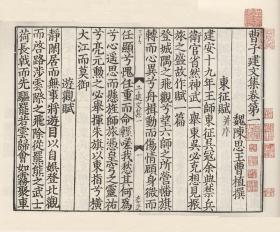 曹子建文集卷第一
魏陳思王曹植撰
東征賦 并序
建安十九年王師東征吳寇余典禁兵
衞官省然神武一舉東夷必克想見振
旅之盛故作賦一篇
登城隅之飛觀兮望六師之所營幡旗
轉而心異兮舟楫動而傷情顧身微而
任顯兮愧任重而命輕嗟我愁其何爲
兮心遙思而懸旌師旅憑皇穹之靈祐
兮亮元勳之必舉揮朱旗以東指兮橫
大江而莫御
遊觀賦
靜閑居而無事將遊目以自娛登北觀
而啓路涉雲際之飛除從羆熊之武士
荷長戟而先驅罷若雲歸會如霧聚車